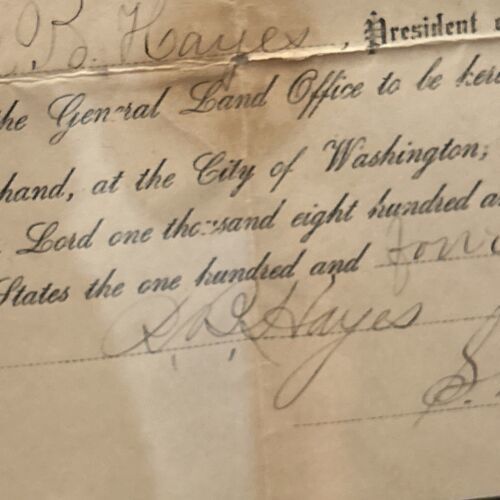 B. Hayes, President
the General Land Office to be
hand, at the City of Washington,
Lord one thousand eight hundred
States the one hundred and
R. B. Hayes
S.